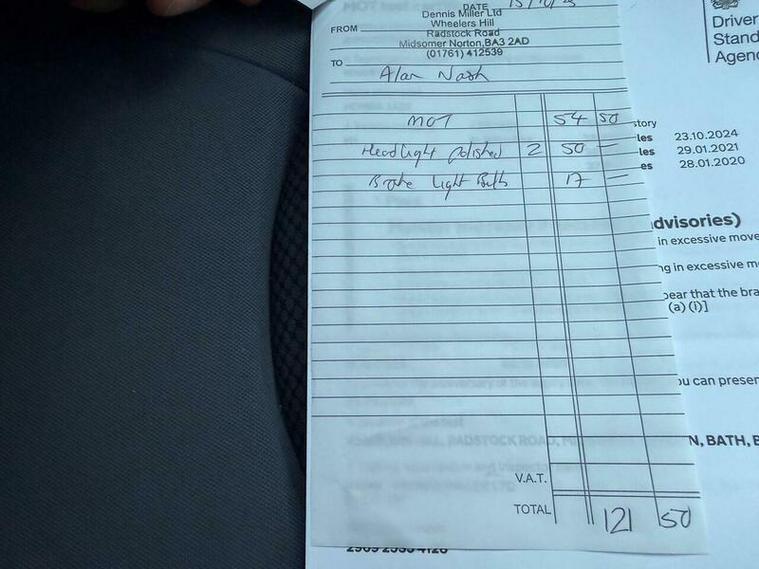 DATE 15/10/25
Dennis Miller Ltd
Wheelers Hill
FROM Radstock Road
Midsomer Norton,BA3 2AD
(01761) 412539
TO Alan Nash
MOT 54 50
Headlight polished 2 50 —
Brake Light Bulb 17 —
V.A.T.
TOTAL 121 50
Driver
Stand
Agenc
story
les 23.10.2024
les 29.01.2021
es 28.01.2020
dvisories)
in excessive move
ng in excessive m
pear that the bra
(a) (i)]
ou can presen
N, BATH, B